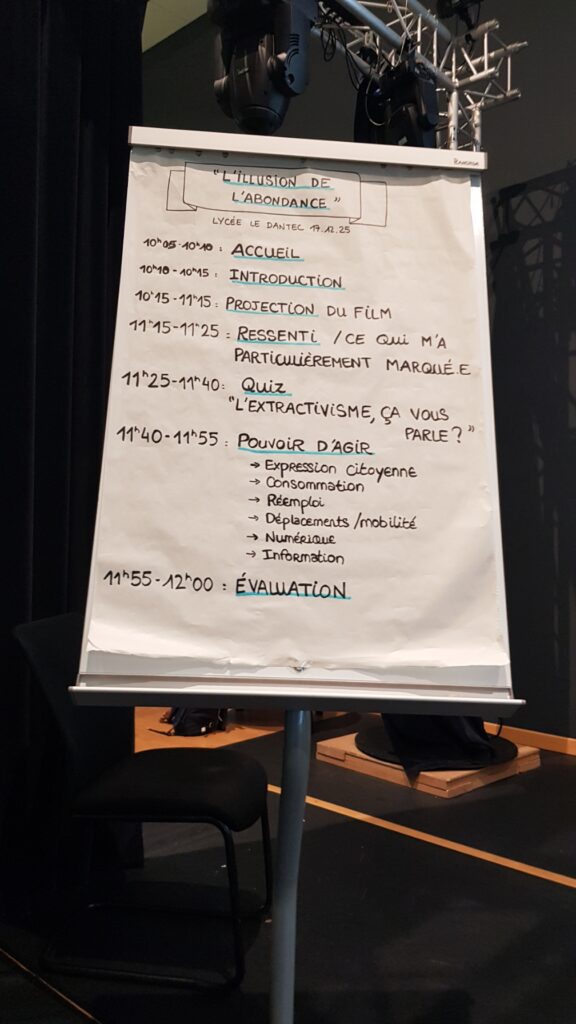 "L'ILLUSION DE
L'ABONDANCE"
LYCÉE LE DANTEC 17.12.25
10h05-10h10 : ACCUEIL
10h10-10h15 : INTRODUCTION
10h15-11h15 : PROJECTION DU FILM
11h15-11h25 : RESSENTI / CE QUI M'A
PARTICULIÈREMENT MARQUÉ.E
11h25-11h40 : QUIZ
"L'EXTRACTIVISME, ÇA VOUS
PARLE ?"
11h40-11h55 : POUVOIR D'AGIR
→ Expression citoyenne
→ Consommation
→ Réemploi
→ Déplacements / mobilité
→ Numérique
→ Information
11h55-12h00 : ÉVALUATION